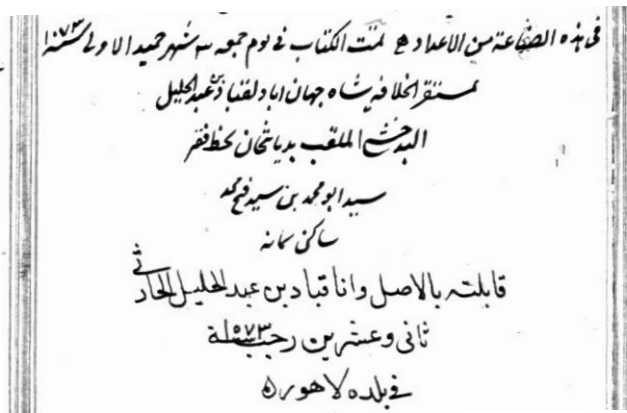 فی هذه الصناعة من الاعداد تمت الکتاب فے یوم جمعه ۳ شهر جمید الاولی سنة ۱۰۷۳
بمستقر الخلافه شاه جهان اباد لقباد بن عبدالجلیل
البدخشے الملقب بدیانتخان بخط فقر
سید ابو محمد بن سید فتح محمد
ساکن سمانه
قابلته بالاصل وانا قباد بن عبدالجلیل الحارثی
ثانی وعشرین رجب سنة ۱۰۷۳
فے بلده لاهور